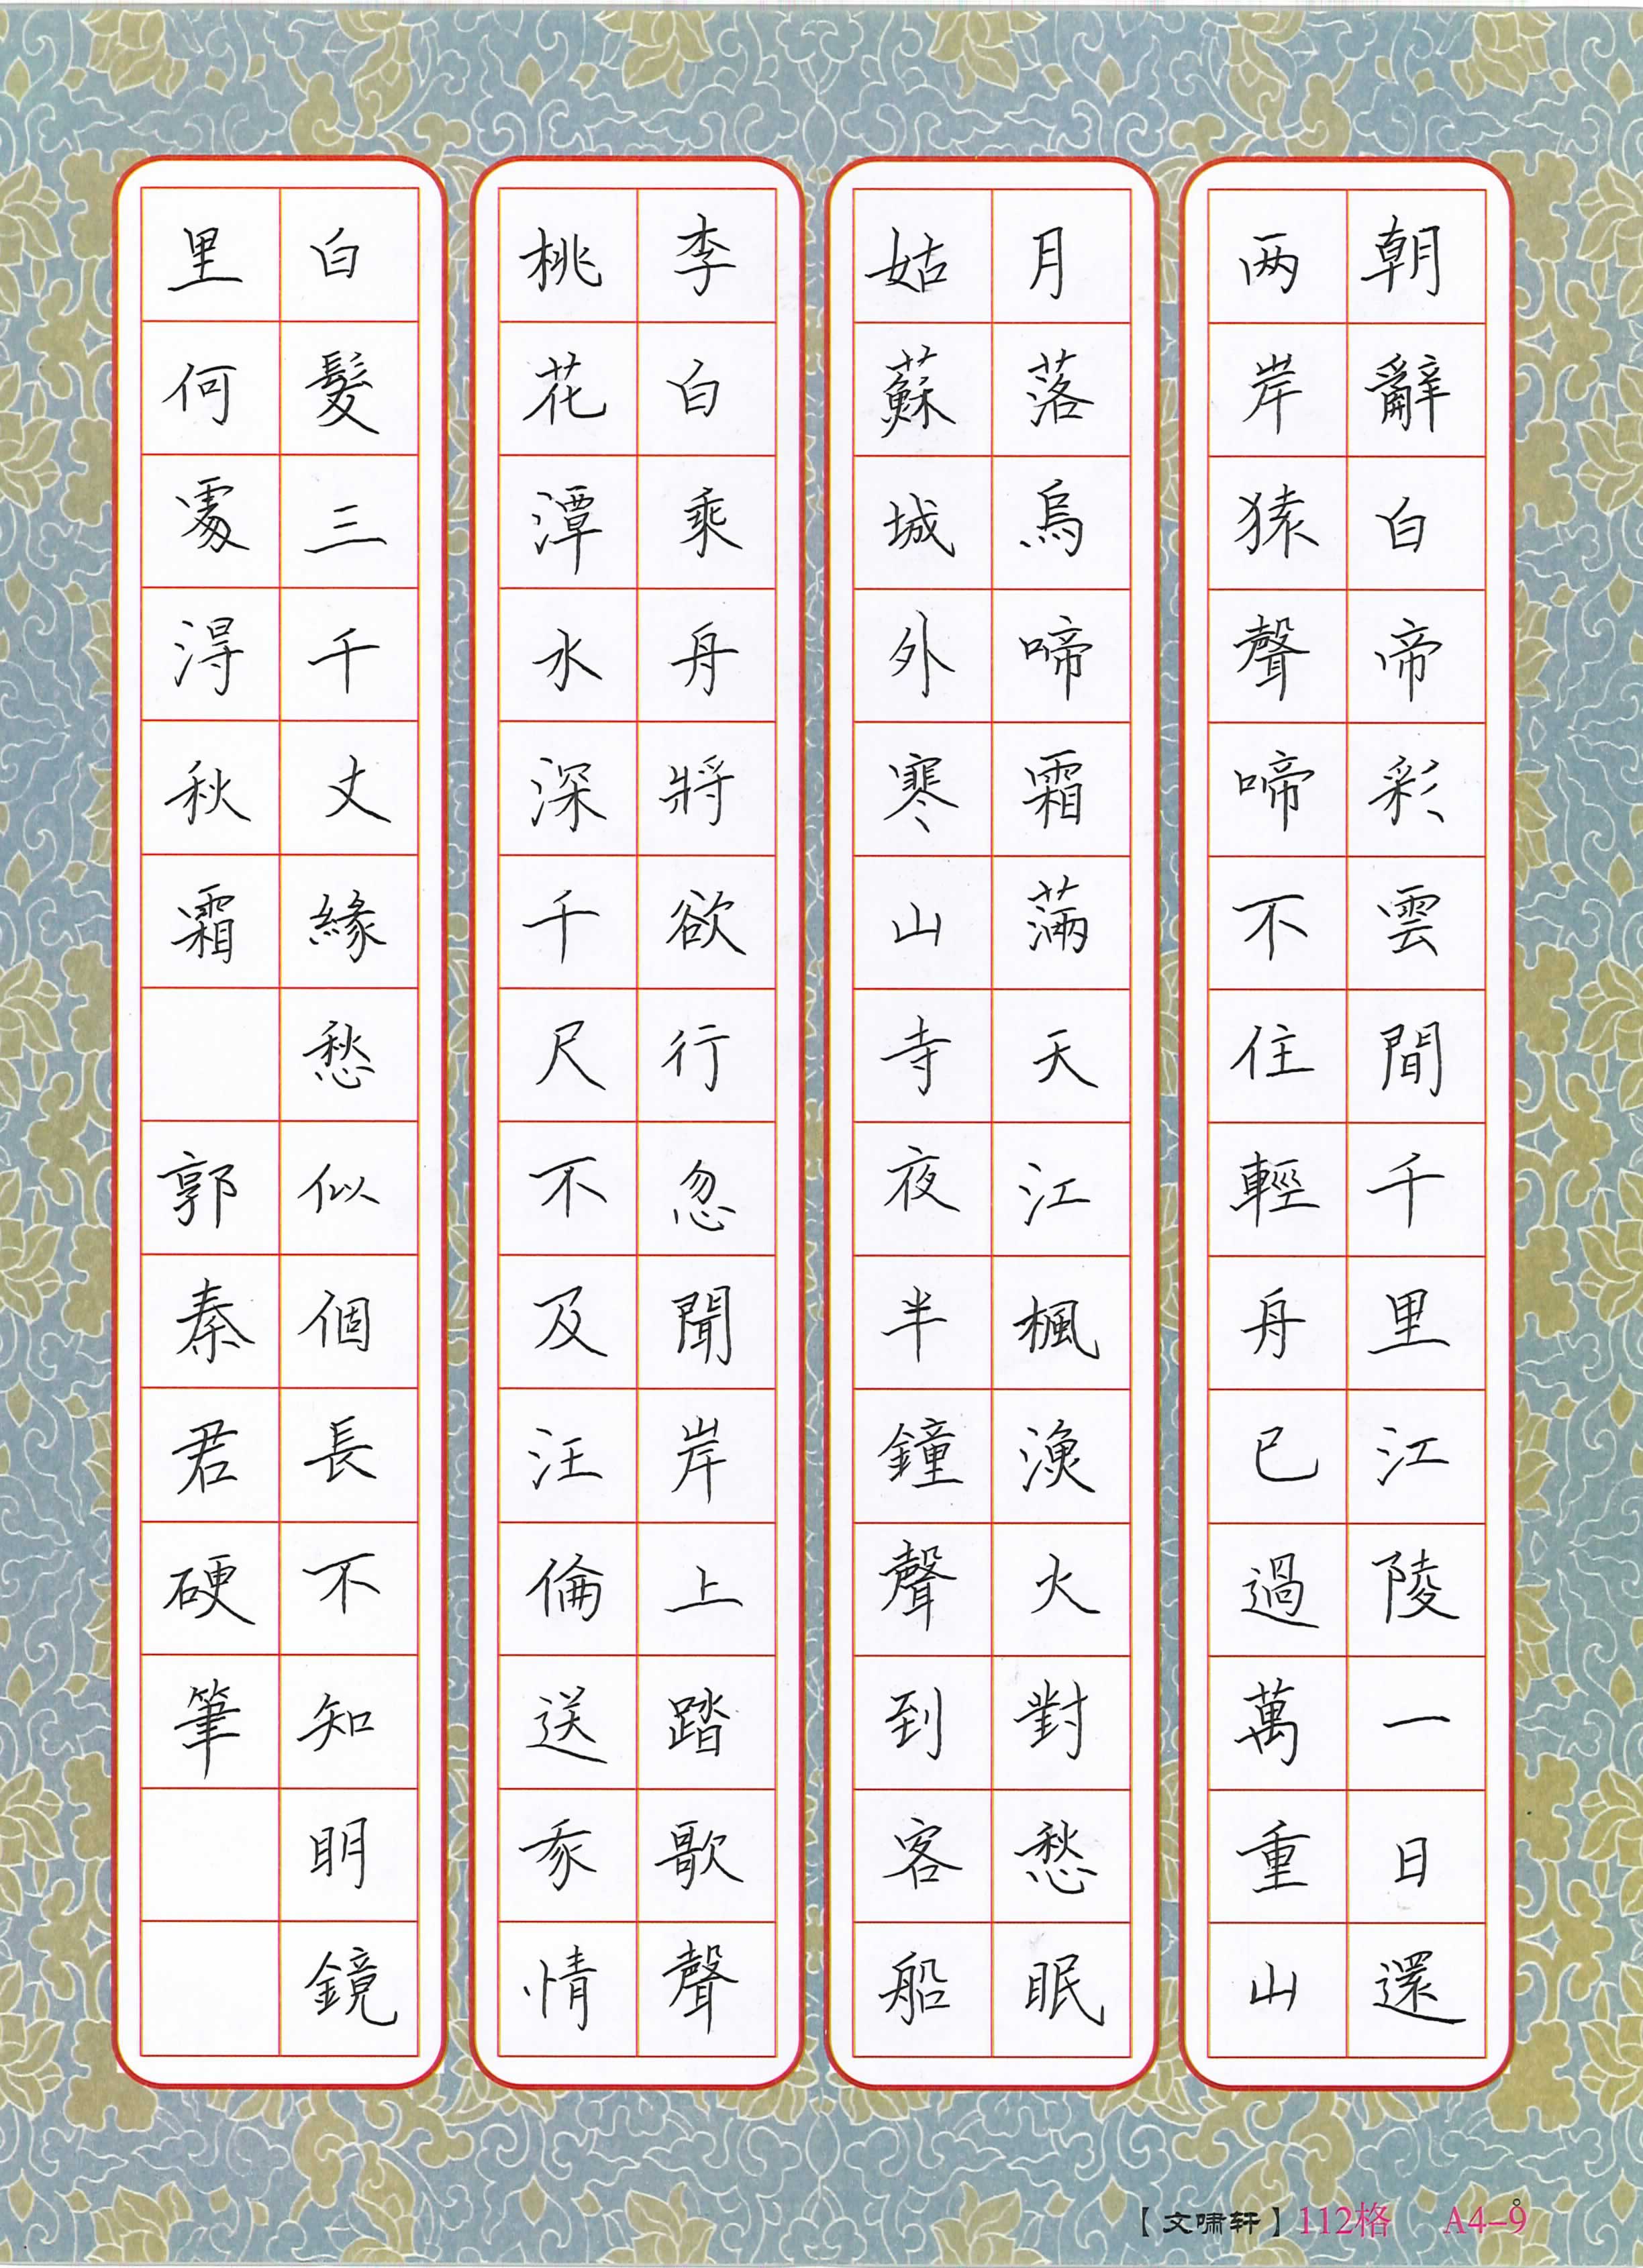 朝辭白帝彩雲間千里江陵一日還
两岸猿聲啼不住輕舟已過萬重山
月落烏啼霜滿天江楓漁火對愁眠
姑蘇城外寒山寺夜半鐘聲到客船
李白乘舟將欲行忽聞岸上踏歌聲
桃花潭水深千尺不及汪倫送我情
白髮三千丈緣愁似個長不知明鏡
里何處得秋霜 郭秦君硬筆
【文啸轩】112格 A4-9